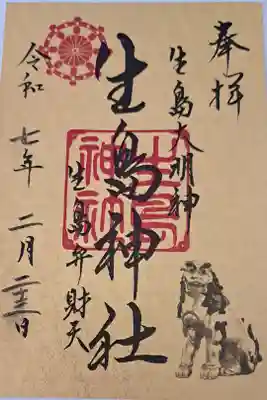 奉拝
生島大明神
生島神社
生島弁財天
令和七年二月二十三日
生島神社